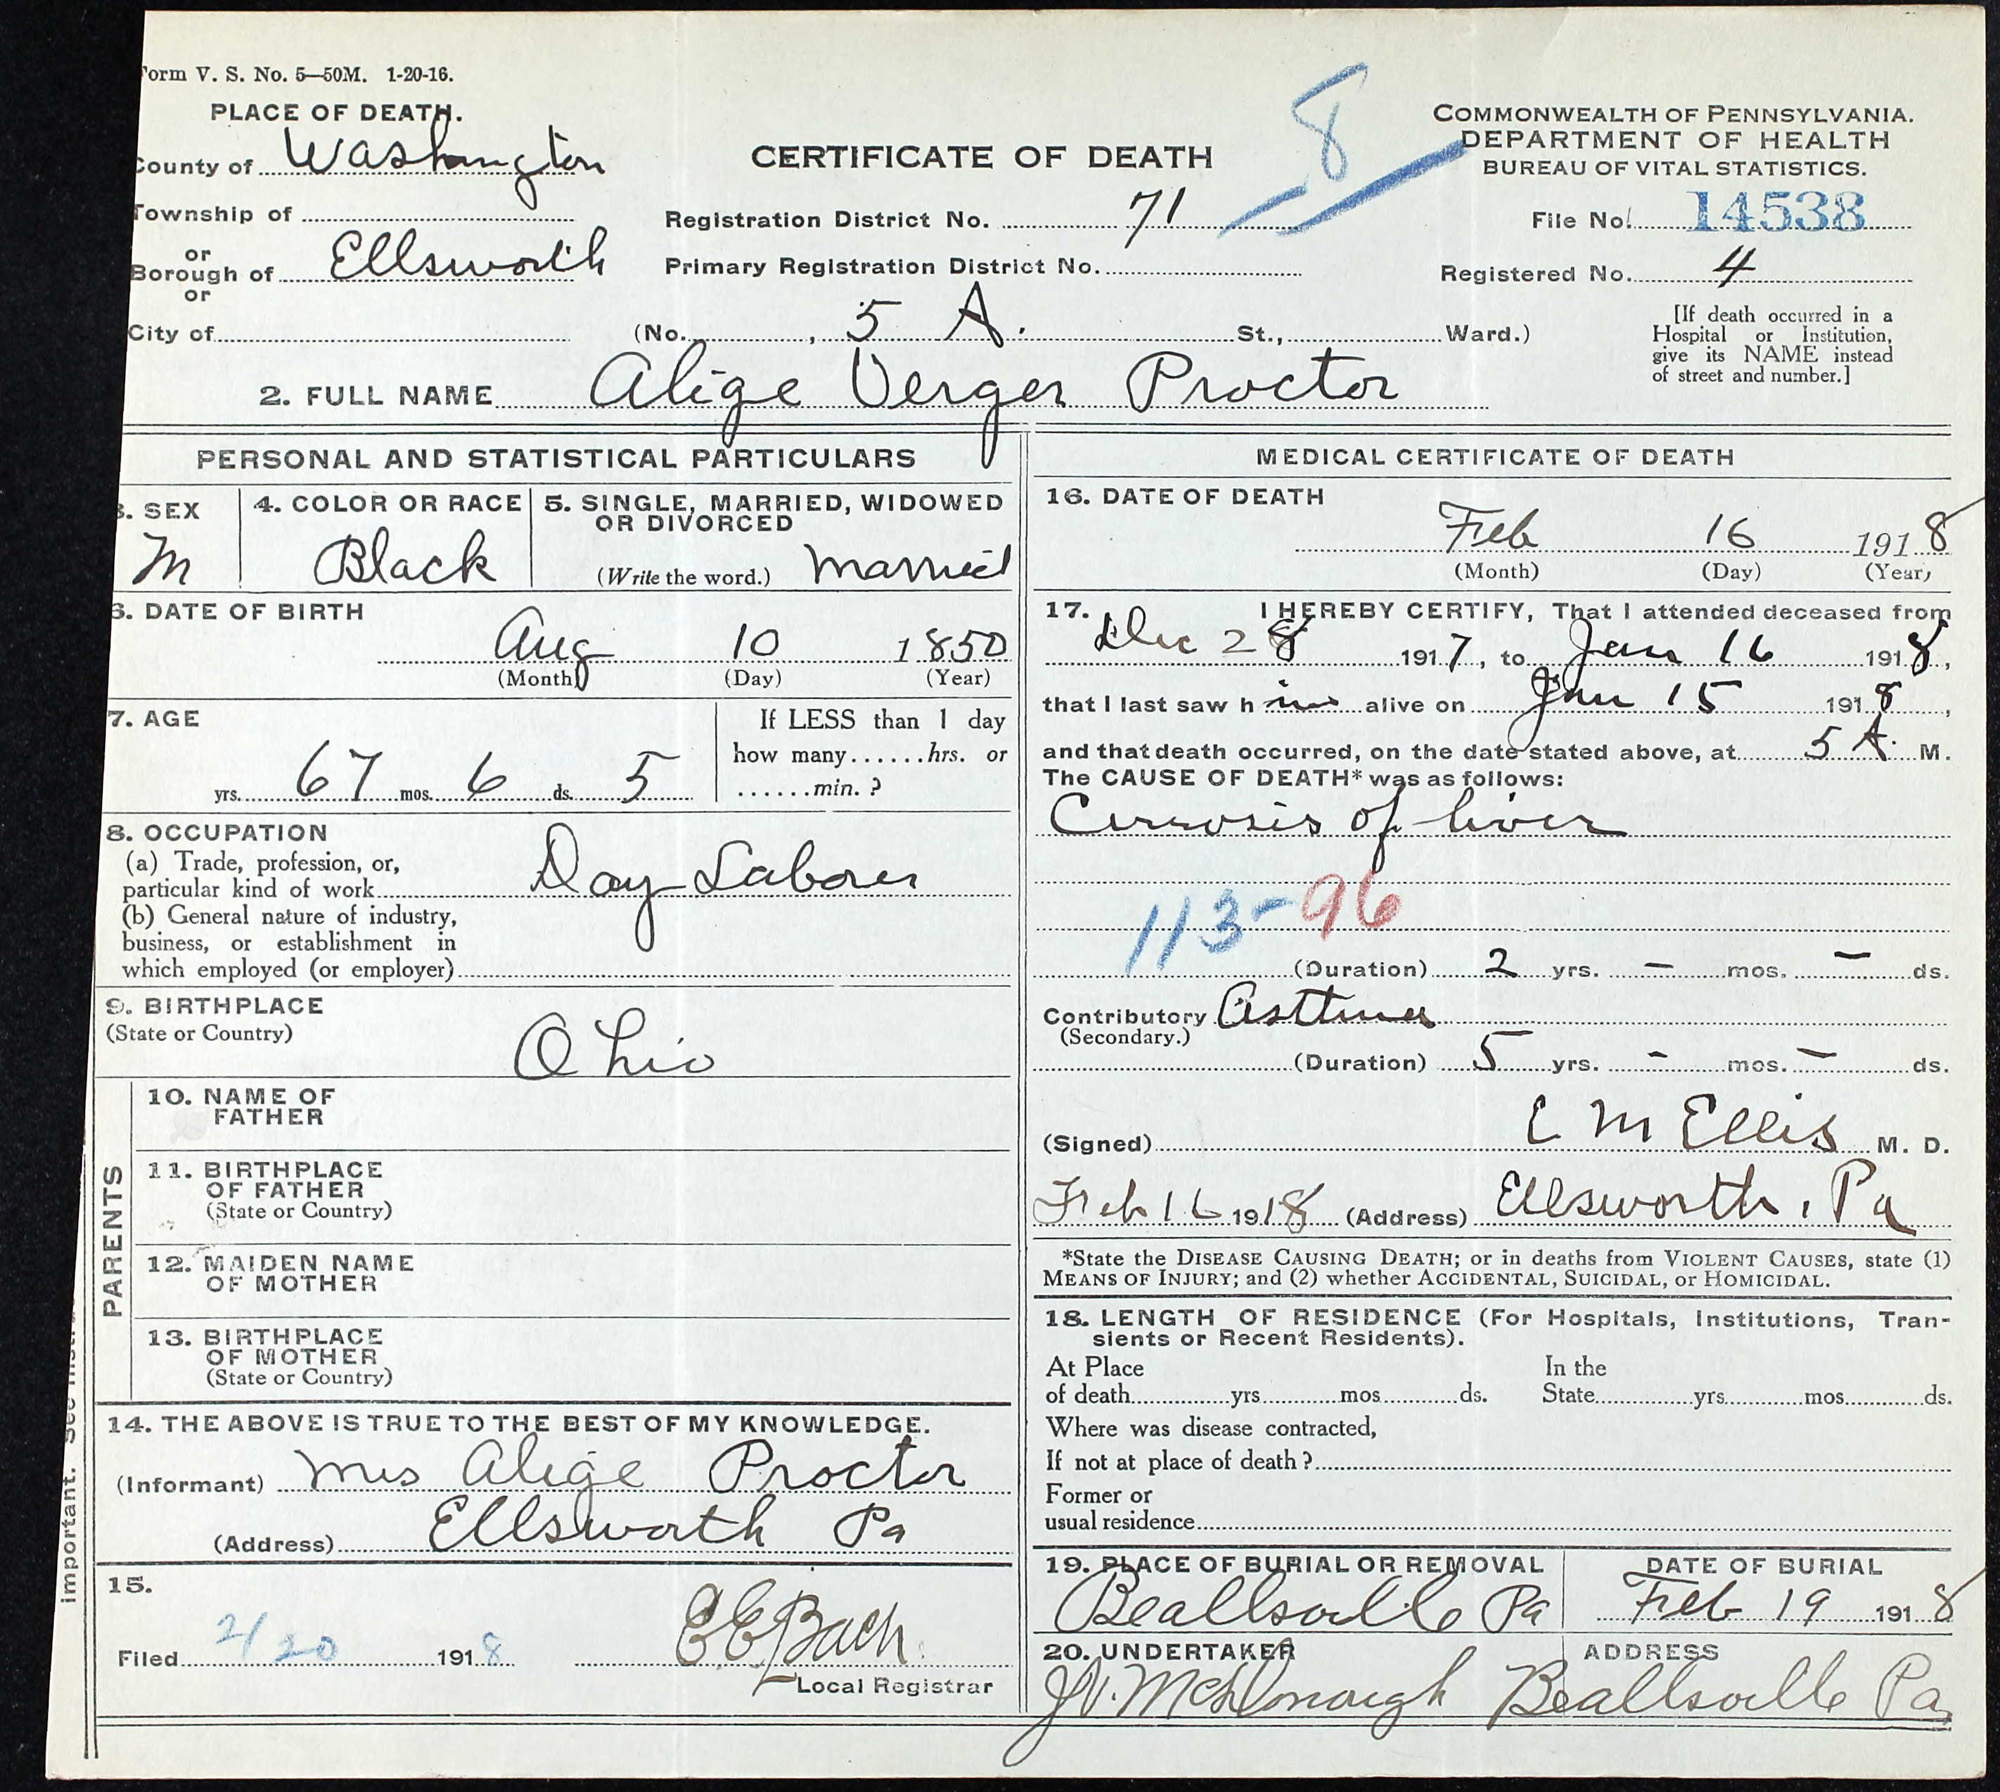 Form V. S. No. 5—50M. 1-20-16.
PLACE OF DEATH.
County of Washington
Township of
or
Borough of Ellsworth
or
City of
CERTIFICATE OF DEATH
Registration District No. 71
Primary Registration District No.
(No. , 5 A. St., Ward.)
8
COMMONWEALTH OF PENNSYLVANIA.
DEPARTMENT OF HEALTH
BUREAU OF VITAL STATISTICS.
File No. 14538
Registered No. 4
[If death occurred in a
Hospital or Institution,
give its NAME instead
of street and number.]
2. FULL NAME Alige Verger Proctor
PERSONAL AND STATISTICAL PARTICULARS
3. SEX
M
4. COLOR OR RACE
Black
5. SINGLE, MARRIED, WIDOWED
OR DIVORCED
(Write the word.) Married
6. DATE OF BIRTH
Aug 10 1850
(Month) (Day) (Year)
7. AGE
yrs. 67 mos. 6 ds. 5
If LESS than 1 day
how many......hrs. or
......min.?
8. OCCUPATION
(a) Trade, profession, or,
particular kind of work Day Laborer
(b) General nature of industry,
business, or establishment in
which employed (or employer)
9. BIRTHPLACE
(State or Country)
Ohio
PARENTS
10. NAME OF
FATHER
11. BIRTHPLACE
OF FATHER
(State or Country)
12. MAIDEN NAME
OF MOTHER
13. BIRTHPLACE
OF MOTHER
(State or Country)
14. THE ABOVE IS TRUE TO THE BEST OF MY KNOWLEDGE.
(Informant) Mrs Alige Proctor
(Address) Ellsworth Pa
15.
Filed 2/20 1918 E E Bach
Local Registrar
important. See
MEDICAL CERTIFICATE OF DEATH
16. DATE OF DEATH
Feb 16 1918
(Month) (Day) (Year)
17. I HEREBY CERTIFY, That I attended deceased from
Dec 28 1917, to Jan 16 1918,
that I last saw him alive on Jan 15 1918,
and that death occurred, on the date stated above, at 5 A. M.
The CAUSE OF DEATH* was as follows:
Cirrosis of liver
113-96
(Duration) 2 yrs. – mos. – ds.
Contributory Asttma
(Secondary.)
(Duration) 5 yrs. – mos. – ds.
(Signed) C M Ellis M. D.
Feb 16 1918 (Address) Ellsworth, Pa
*State the DISEASE CAUSING DEATH; or in deaths from VIOLENT CAUSES, state (1)
MEANS OF INJURY; and (2) whether ACCIDENTAL, SUICIDAL, or HOMICIDAL.
18. LENGTH OF RESIDENCE (For Hospitals, Institutions, Tran-
sients or Recent Residents).
At Place In the
of death yrs mos ds. State yrs mos ds.
Where was disease contracted,
If not at place of death?
Former or
usual residence
19. PLACE OF BURIAL OR REMOVAL
Beallsville Pa
DATE OF BURIAL
Feb 19 1918
20. UNDERTAKER
J V. McDonough
ADDRESS
Beallsville Pa